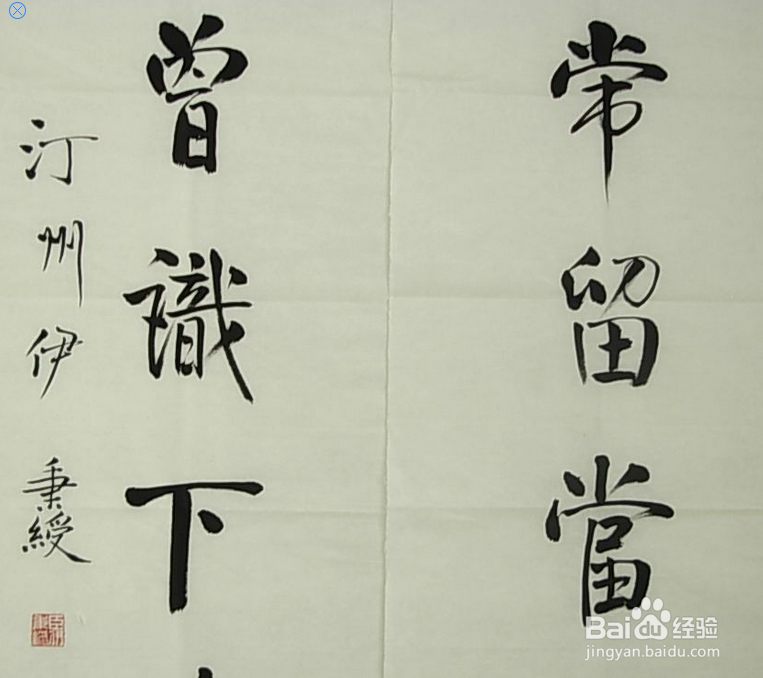 常留當
曾識下
汀州伊秉綬
Baidu经验
jingyan.baidu.com